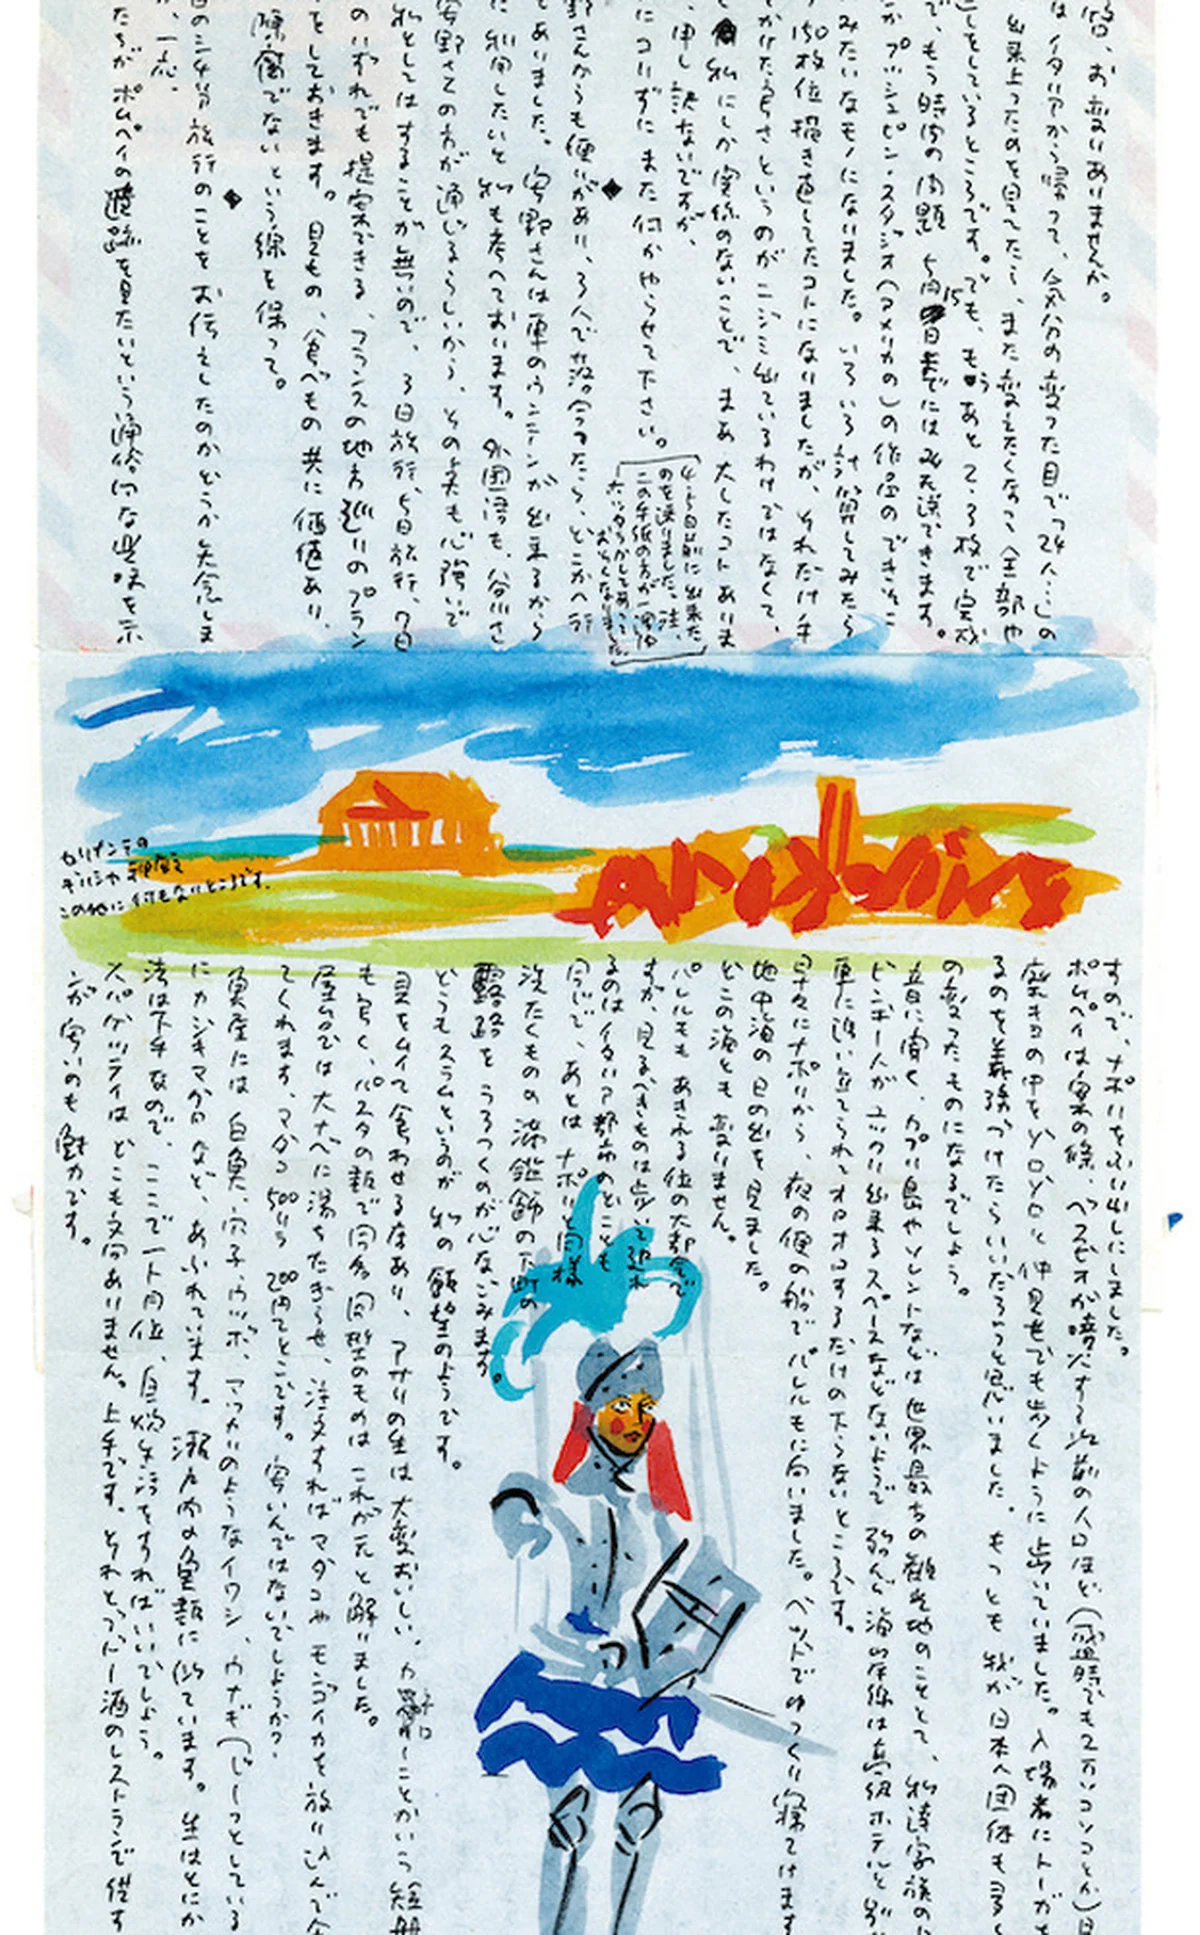 お変りありませんか。
はイタリアから帰って、気分の変った目で「24…」の
出来上ったのを見てたら、また変えたくなって全部や
しをしているところです。でも、もうあと2、3枚で完成
で、もう時間の問題 5月15日までにはお送できます。
かプッシュピン・スタジオ(アメリカの)の作品のできそこ
みたいなモノになりました。いろいろ計算してみたら
150枚位描き直してたコトになりましたが、それだけ手
かけた良さというのがニジミ出ているわけではなくて、
私にしか関係のないことで、まあ大したコトありま
、申し訳ないですが、
にコリずにまた何かやらせて下さい。
4、5日前に出来た
のを送りました。注、
この手紙の方が
◆
野さんからも便りがあり、3人で落合ったら、どこかへ行
とありました。安野さんは車のウンテンが出来るから
に利用したいと私も考へております。外国語も、谷川さ
安野さんの方が通じるらしいから、その点も心強いで
私としてはすることが無いので、3日旅行、5日旅行、7日
のいずれでも提案できる、フランスの地方巡りのプラン
をしておきます。見もの、食べもの共に価値あり、
贅沢でないという線を保って。
◆
旅行のことをお伝えしたのかどうか失念しま
、一応。
たちがポムペイの遺跡を見たいという通俗的な興味を示
カリゲンテの
神殿
この他に何もないところです。
すので、ナポリをふり出しにしました。
ポムペイは案の條、ベスビオが噴火する以前の人口ほど(盛時でも2万ソコソコとか)見
廃キョの中をゾロゾロと仲見世でも歩くように歩いていました。入場者にトーガを
るのを義務づけたらいいだろうと思いました。もっとも我が日本人団体も多く
の変ったものになるでしょう。
音に聞く、カプリ島やソレントなどは世界最古の観光地のこととて、私達家族の
ビンボー人がユックリ出来るスペースなどないようで 海岸線は高級ホテルと
車に追い立てられてオロオロするだけの下らないところです。
早々にナポリから、夜の便の船でパレルモに向いました。ベッドでゆっくり寝てけます
地中海の日の出を見ました。
どこの海とも変りません。
パレルモもあきれる位の大都会で
すが、見るべきものは歩いて廻れ
るのはイタリア都市のどことも
同じで、あとはナポリと同様
洗たくものの満艦飾の下町の
露路をうろつくのが心なごみます。
どうもスラムというのが私の願望のようです。
貝をムイて食わせる店あり、アサリの生は大変おいしい。
も良く、パスタの類で同名同型のものはこれが元と解りました。
屋台では大ナベに湯をたぎらせ、注文すればマダコやモンゴイカを放り込んで
てくれます、マダコ500リラ 200円てとこです。安いんではないでしょうか?
魚屋には白魚、穴子、ウツボ、マッカリのようなイワシ、ウナギ(じーっとしている
にカジキマグロなど、あふれています。瀬戸内の魚類に似ています。生はとにか
法は下手なので、ここで一ト月位、自炊生活をすればいいでしょう。
スパゲッティはどこも文句ありません。上手です。それとブドー酒のレストランで供す
が安いのも魅力です。